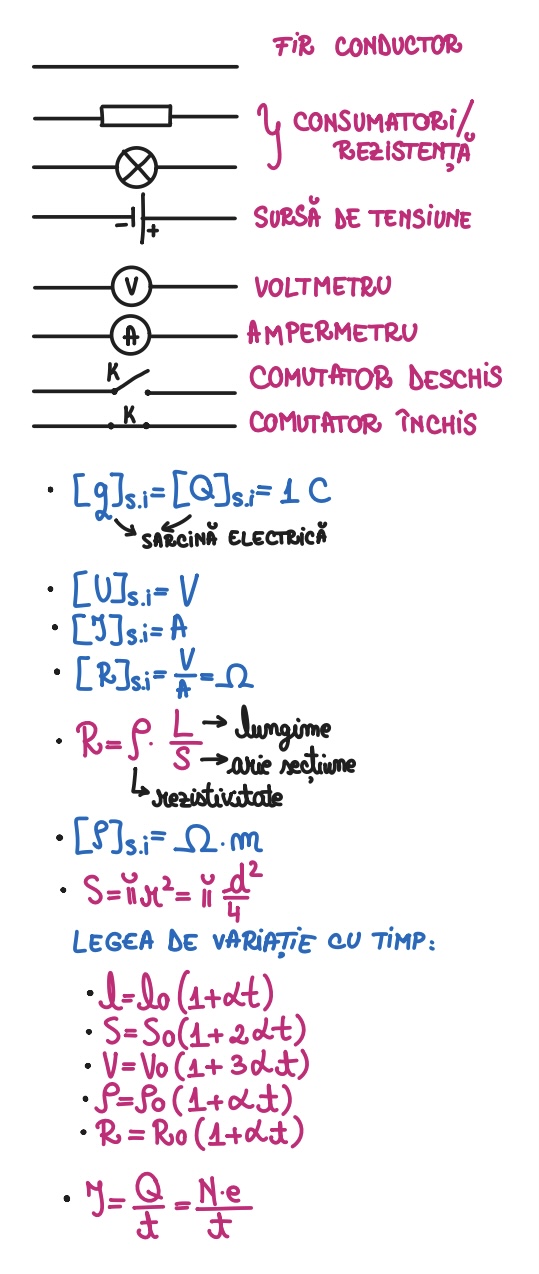 FIR CONDUCTOR
} CONSUMATORI/
REZISTENȚĂ
- +
SURSĂ DE TENSIUNE
V VOLTMETRU
A AMPERMETRU
K COMUTATOR DESCHIS
K COMUTATOR ÎNCHIS
• [q]s.i = [Q]s.i = 1 C
SARCINĂ ELECTRICĂ
• [U]s.i = V
• [I]s.i = A
• [R]s.i = V/A = Ω
• R = ρ · L/S → lungime
→ arie secțiune
↳ rezistivitate
• [ρ]s.i = Ω · m
• S = πr² = π d²/4
LEGEA DE VARIAȚIE CU TIMP:
• l = l₀ (1 + αt)
• S = S₀ (1 + 2αt)
• V = V₀ (1 + 3αt)
• ρ = ρ₀ (1 + αt)
• R = R₀ (1 + αt)
• I = Q/t = N·e/t